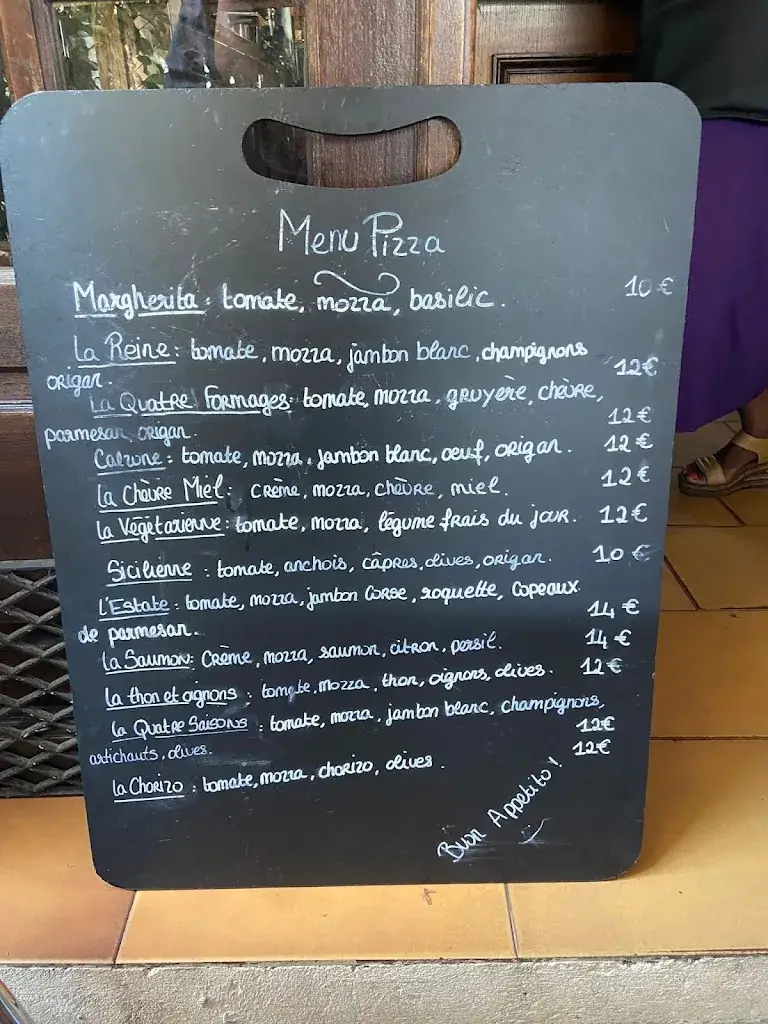 Menu Pizza
Margherita : tomate, mozza, basilic. 10 €
La Reine : tomate, mozza, jambon blanc, champignons
origan. 12€
La Quatre Formages : tomate, mozza, gruyère, chèvre,
parmesan, origan. 12€
Calzone : tomate, mozza, jambon blanc, oeuf, origan. 12€
La Chèvre Miel : crème, mozza, chèvre, miel. 12€
La Végétarienne : tomate, mozza, légume frais du jour. 12€
Sicilienne : tomate, anchois, câpres, olives, origan. 10 €
L'Estate : tomate, mozza, jambon Corse, roquette, copeaux
de parmesan. 14 €
La Saumon : Crème, mozza, saumon, citron, persil. 14 €
La thon et oignons : tomate, mozza, thon, oignons, olives. 12€
La Quatre Saisons : tomate, mozza, jambon blanc, champignons,
artichauts, olives. 12€
La Chorizo : tomate, mozza, chorizo, olives. 12€
Buon Appetito !